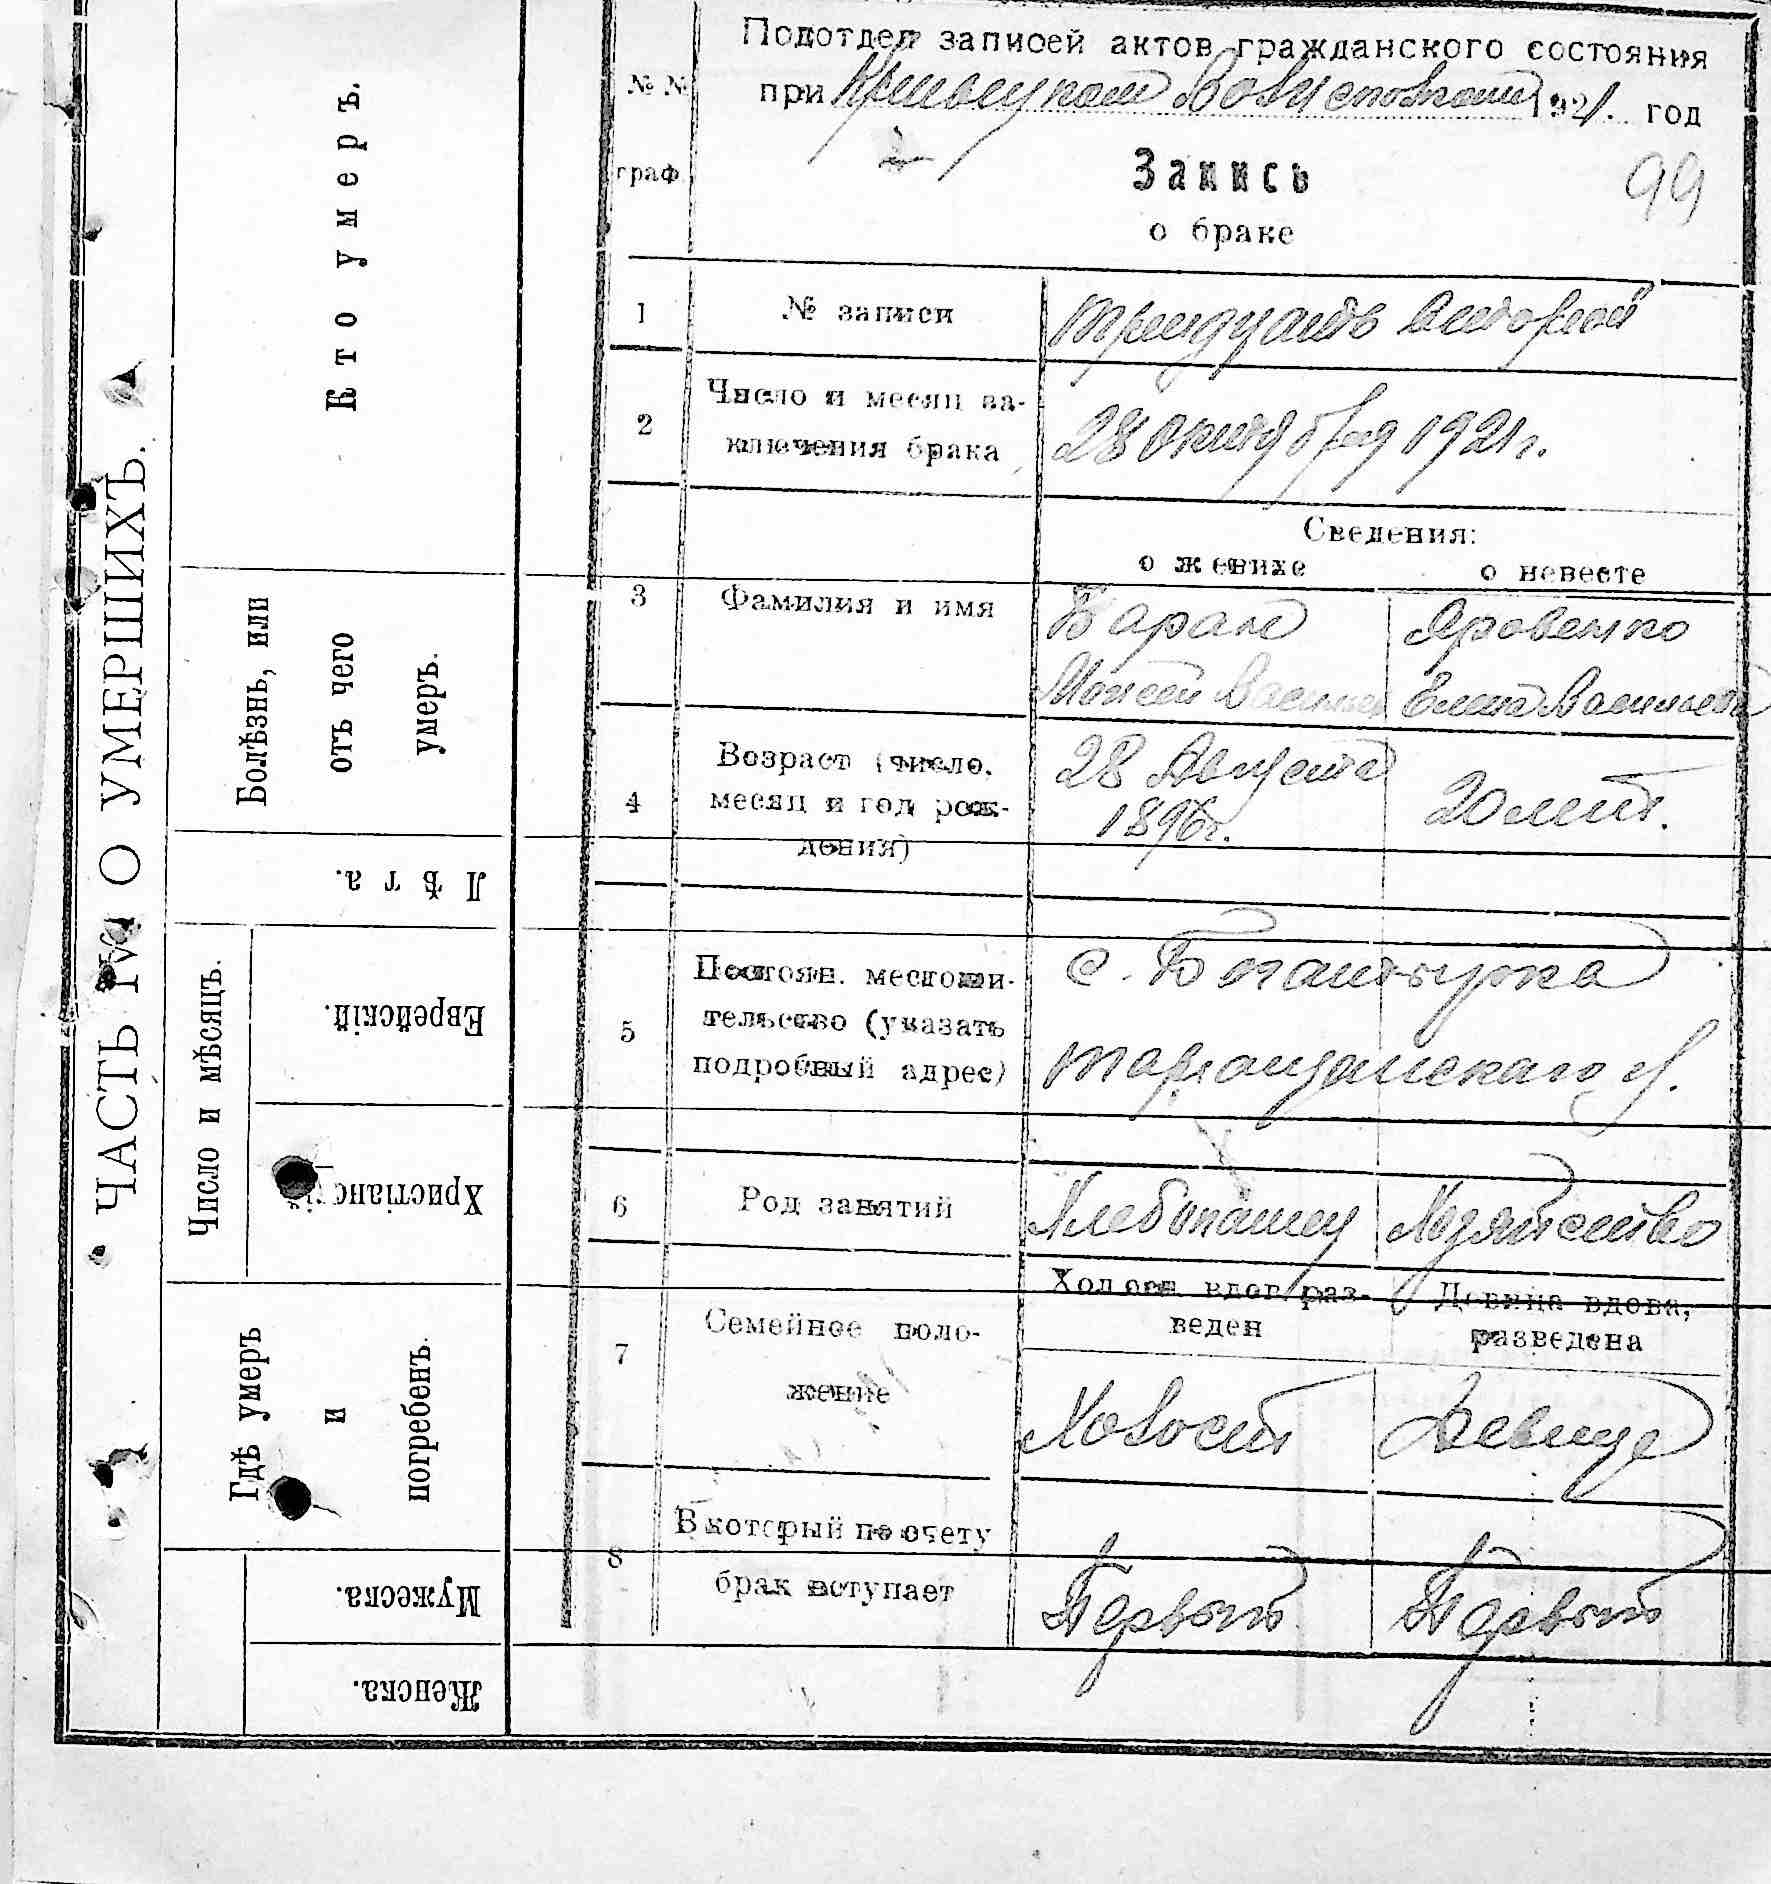 ЧАСТЬ IV. О УМЕРШИХЪ.
Кто умеръ.
Болѣзнь, или
отъ чего
умеръ.
Лѣта.
Число и мѣсяцъ.
Еврейскій.
Христіанскій.
Гдѣ умеръ
и
погребенъ.
Мужеска.
Женска.
№ №
граф.
Подотдел записей актов гражданского состояния
при 1921. год
2
Запись
99
о браке
1 № записи тридцать второй
2 Число и месяц за-
ключения брака 28 октября 1921 г.
Сведения:
о женихе о невесте
3 Фамилия и имя Баран Яровенко
Моисей Василев Елена Васильева
4 Возраст (число,
месяц и год рож-
дения) 28 Августа
1896 г. 20 лет.
5 Постоян. местожи-
тельство (указать
подробный адрес) с. Богатырка
таращанскаго у.
6 Род занятий Хлебопашец Хозяйство
7 Семейное поло-
жение
Холост вдов. раз-
веден
Девица вдова,
разведена
Холост Девица
8 В который по счету
брак вступает Первый Первый